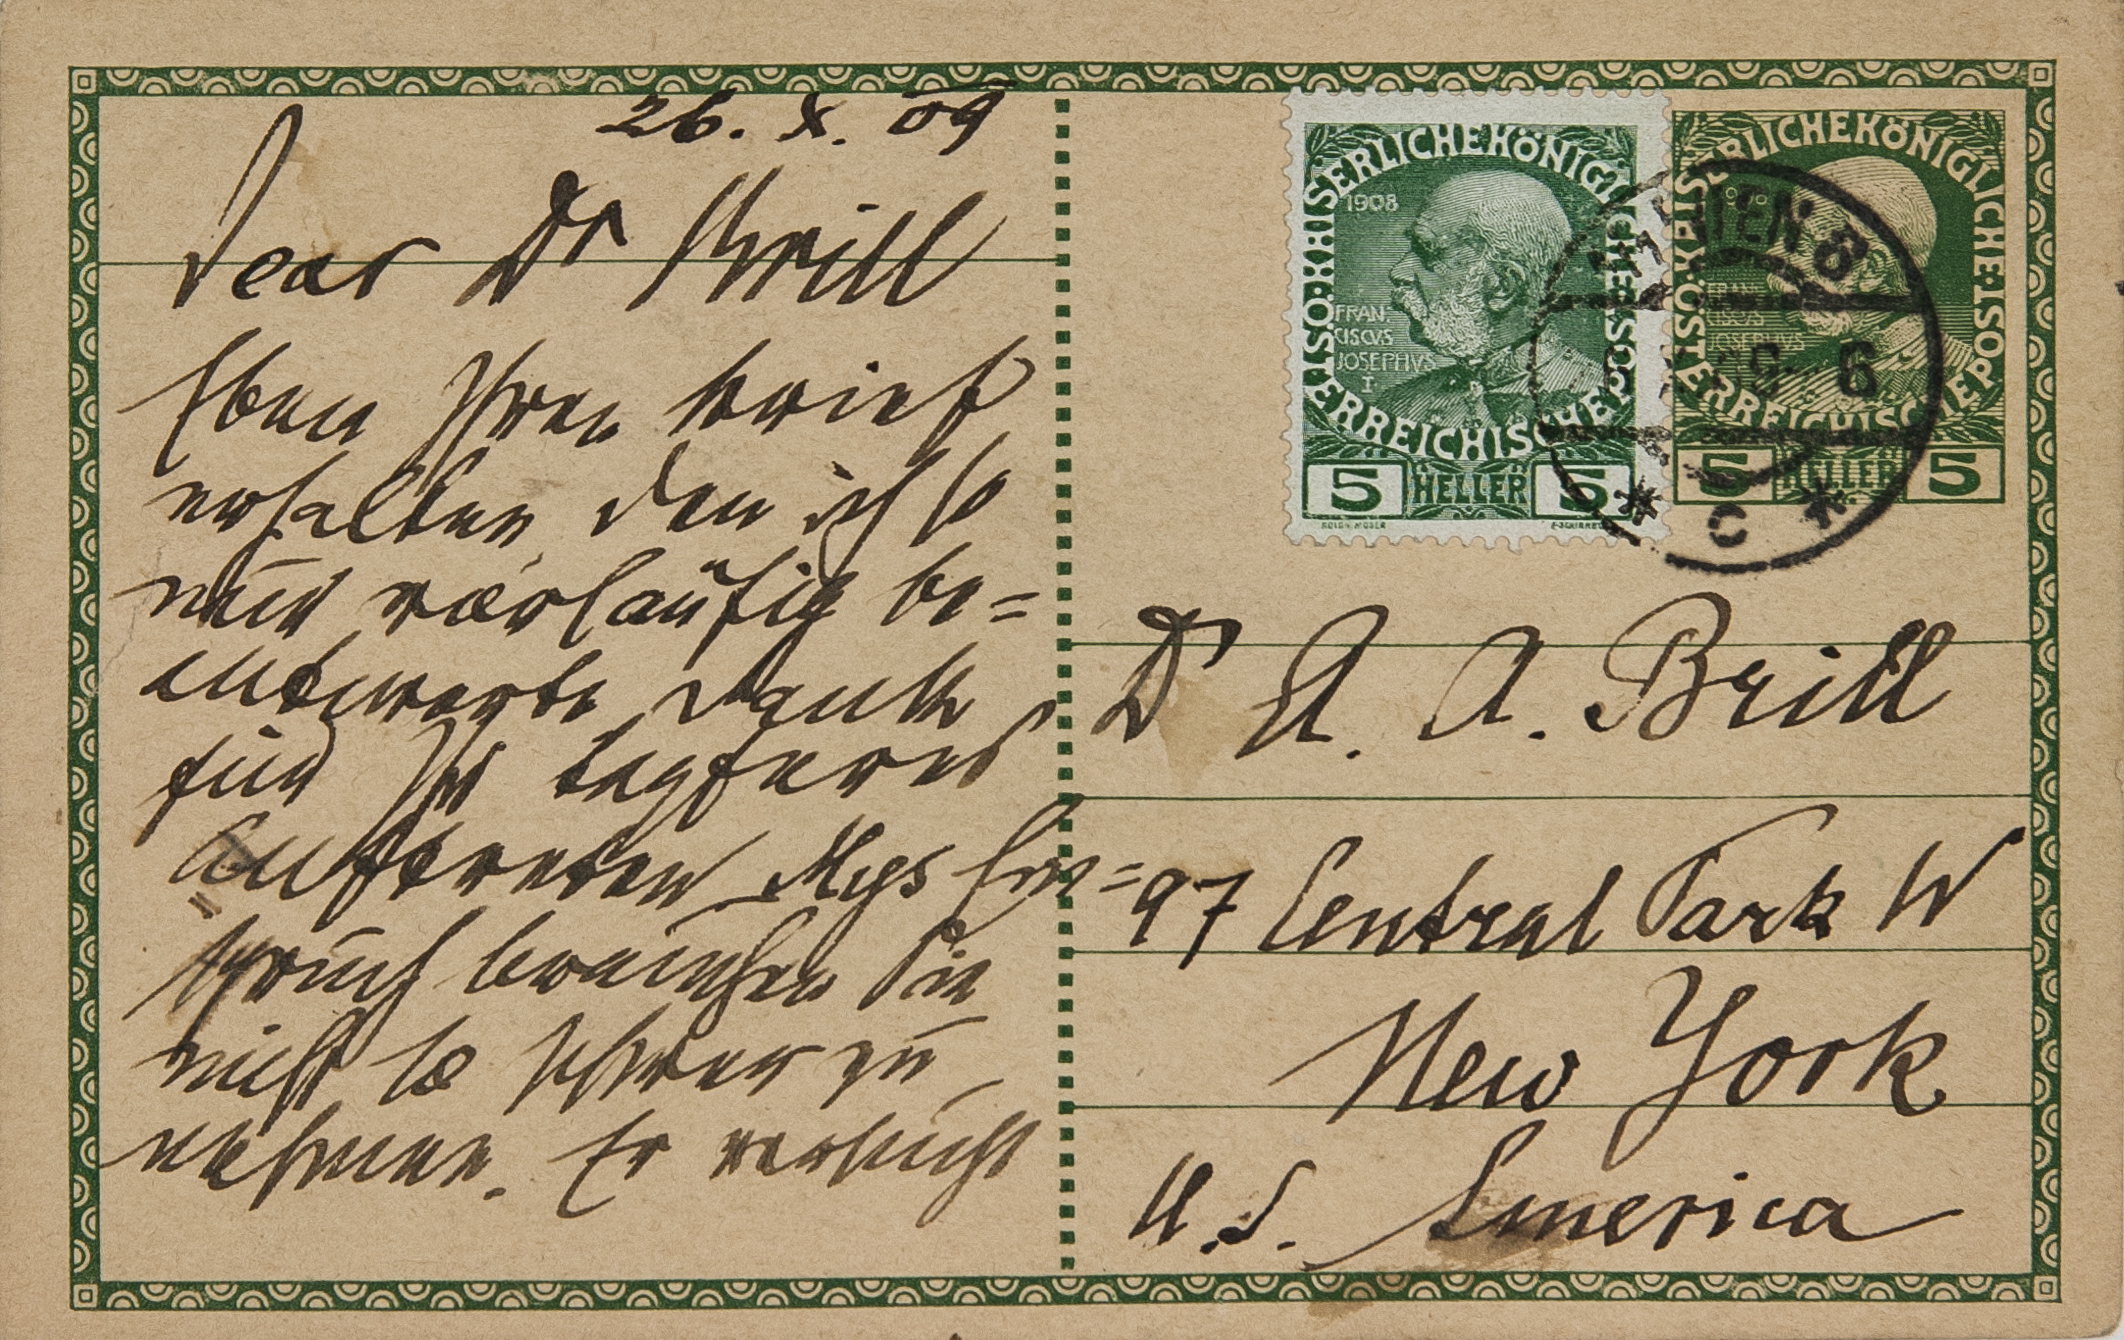 26. X. 09
Dear Dr Brill
Eben Ihren Brief
erhalten den ich so
nur vorläufig be=
antworte Dank
für Ihr tapferes
Auftreten
spruch brauchen Sie
nicht so schwer zu
nehmen. Er versucht
KAISERLICHE KÖNIGLICHE ÖSTERREICHISCHE POST
1908
FRAN
CISCVS
JOSEPHVS
I
5 HELLER 5
KOLO MOSER
KAISERLICHE KÖNIGLICHE ÖSTERREICHISCHE POST
FRAN
CISCVS
JOSEPHVS
5 HELLER 5
WIEN 8
9 - 6
* C *
Dr A. A. Brill
97 Central Park W
New York
U.S. America